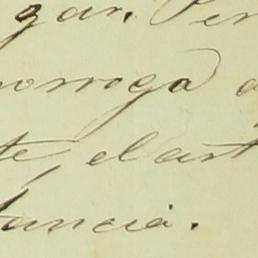 gar. Per
orroga a
te, el art
tancia.